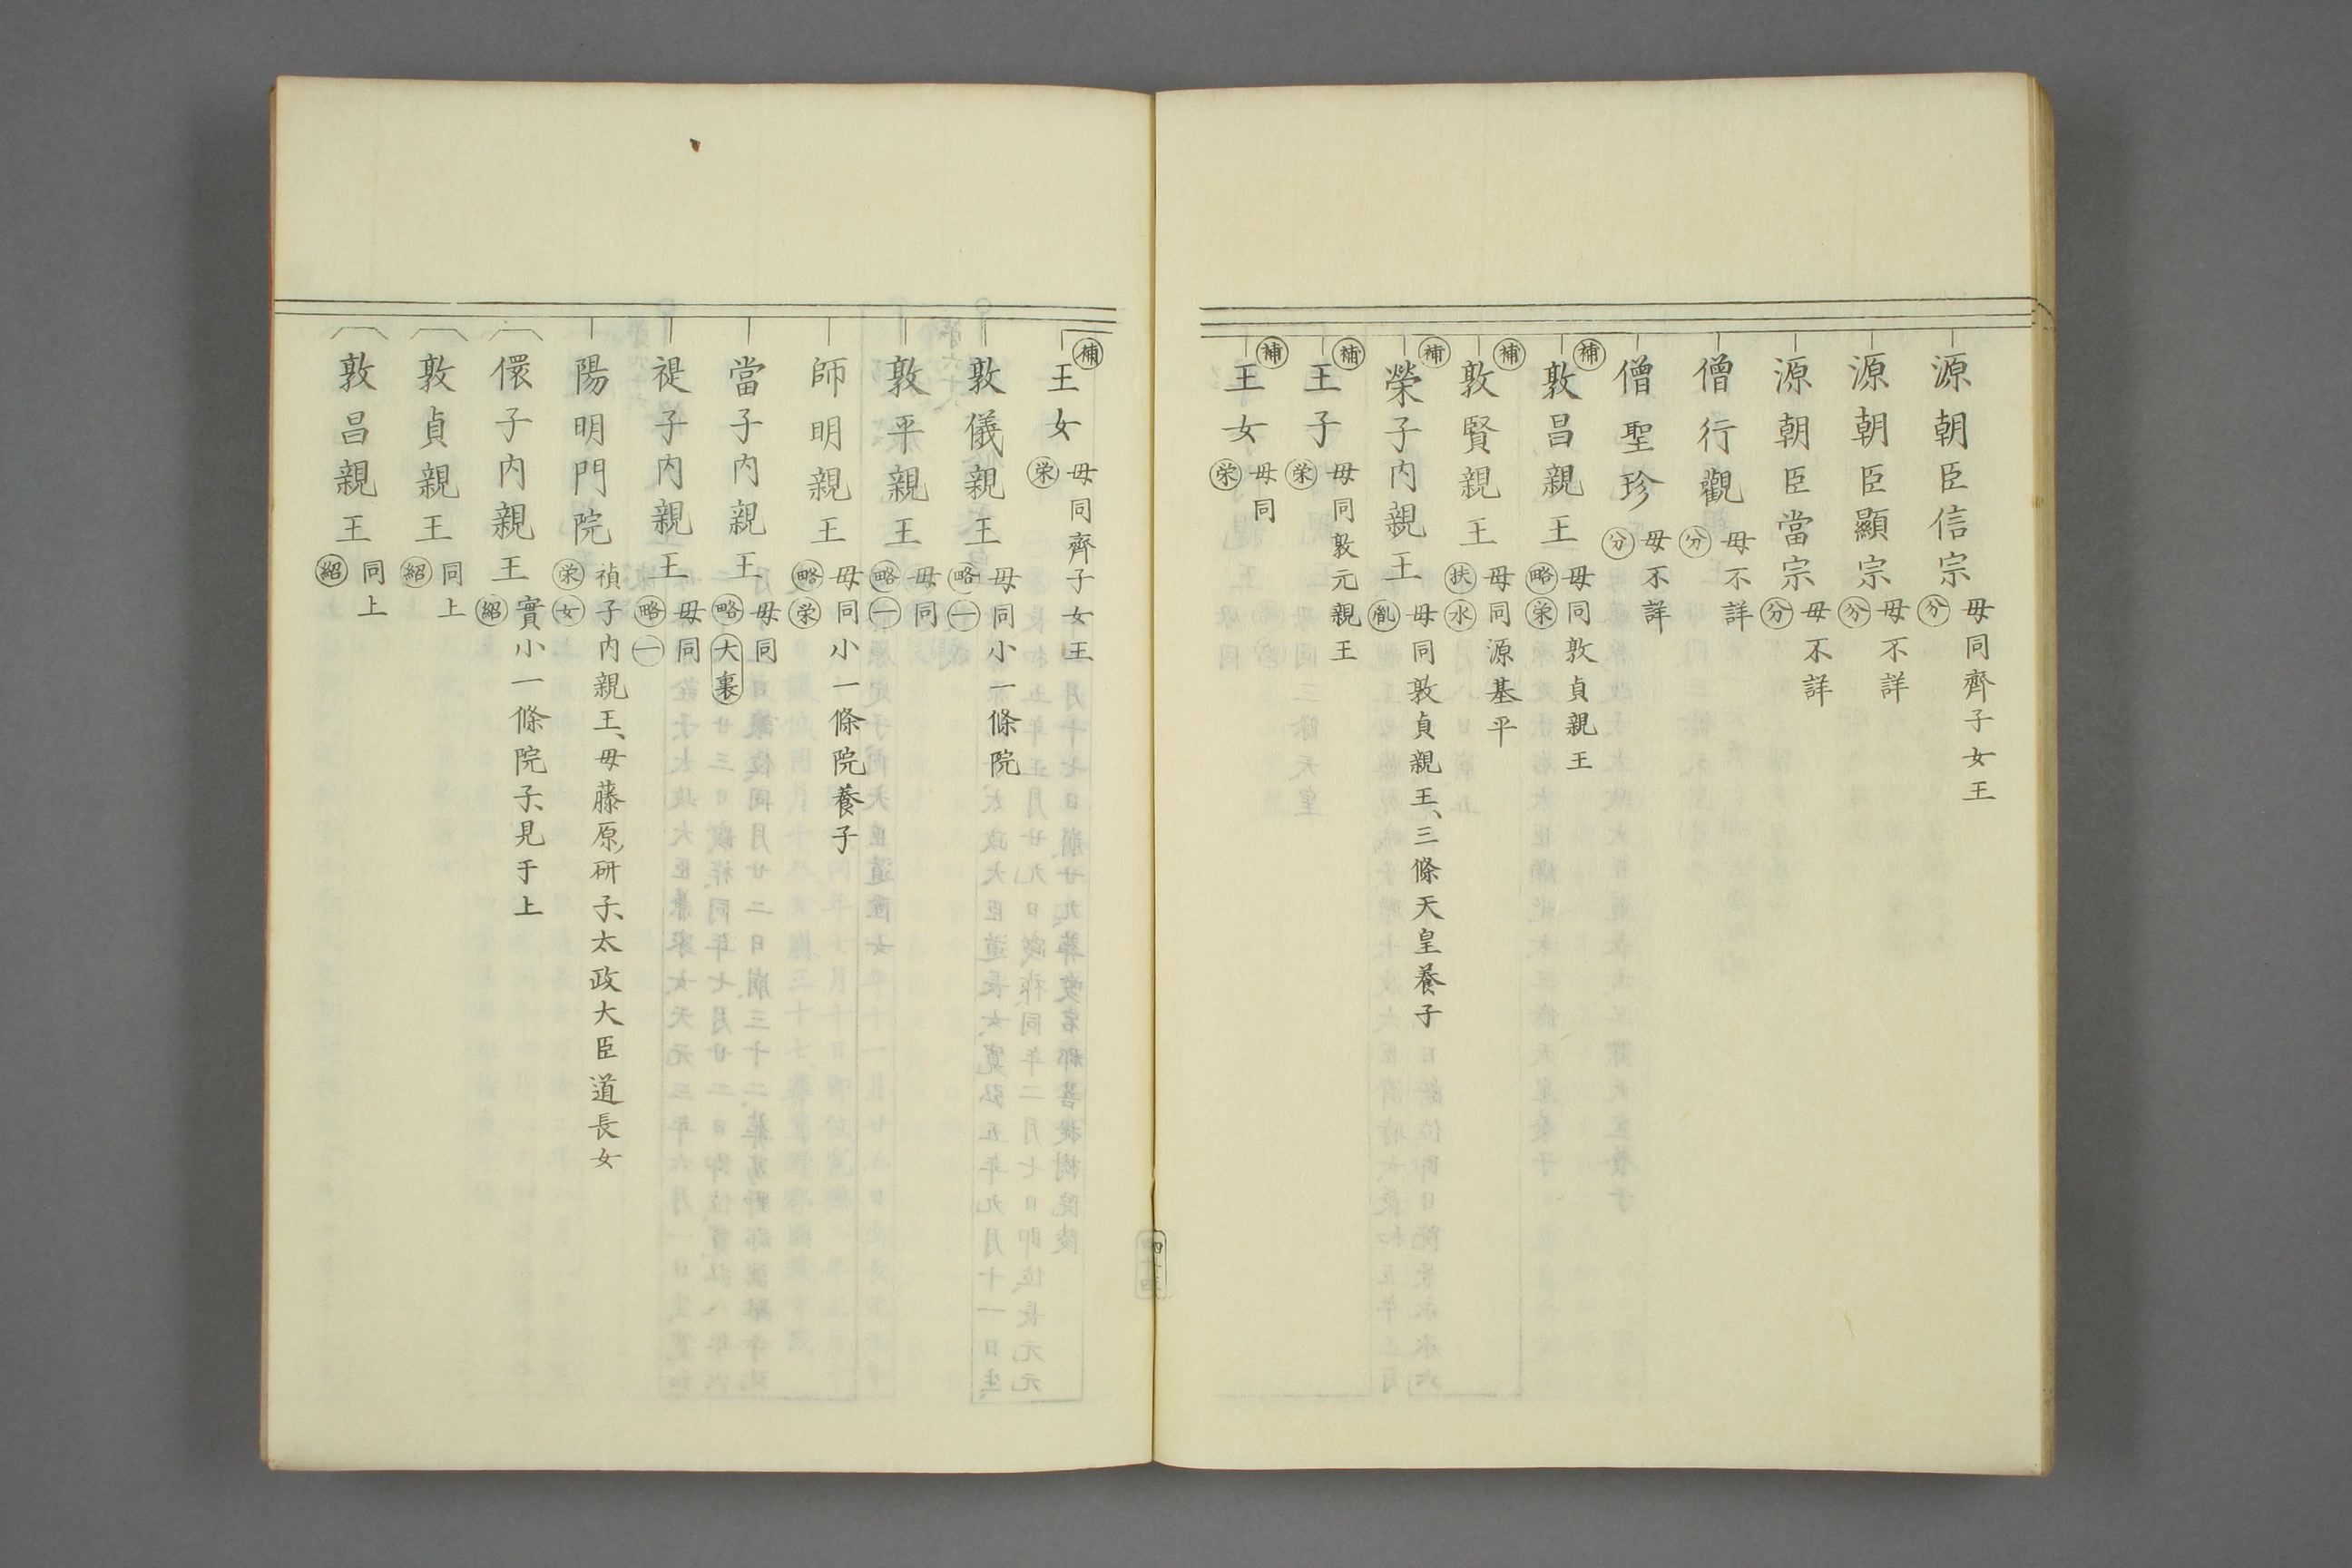 源朝臣信宗 母同齊子女王 分
源朝臣顯宗 母不詳 分
源朝臣當宗 母不詳 分
僧行觀 母不詳 分
僧聖珍 母不詳 分
補 敦昌親王 母同敦貞親王 略 栄
補 敦賢親王 母同源基平 扶 水
補 榮子内親王 母同敦貞親王、三條天皇養子 胤
補 王子 母同敦元親王 栄
補 王女 母同 栄
補 王女 母同齊子女王 栄
敦儀親王 母同小一條院 略 一
敦平親王 母同 略 一
師明親王 母同小一條院養子 略 栄
當子内親王 母同 略 大裏
禔子内親王 母同 略 一
陽明門院 禎子内親王、母藤原研子、太政大臣道長女 栄 女
儇子内親王 實小一條院子、見于上 紹
敦貞親王 同上 紹
敦昌親王 同上 紹